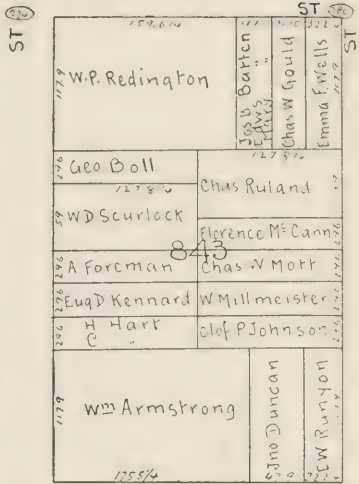 ST
ST
ST
W.P. Redington
Jos B Barten
Edw S "
Mary "
Chas W Gould
Emma F. Wells
1179
Geo Boll
296
Chas Ruland
W D Scurlock
59
Florence Mc Cann
843
A Foreman
296
Chas W Mott
Eug D Kennard
296
W Millmeister
H Hart
C "
296
Olof P Johnson
Wm Armstrong
1179
Jno Duncan
E W Runyon